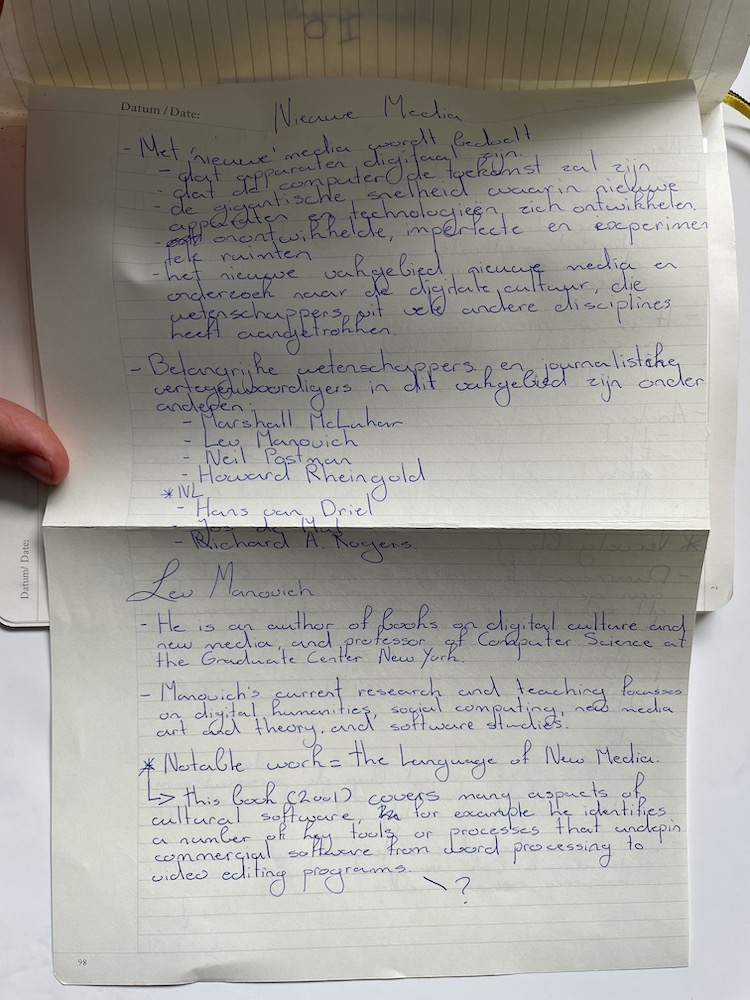 Datum / Date:
Nieuwe Media
- Met 'nieuwe' media wordt bedoelt
- dat apparaten digitaal zijn.
- dat de computer de toekomst zal zijn
- de gigantische snelheid waarin nieuwe
apparaten en technologieën zich ontwikkelen.
- onontwikkelde, imperfecte en experimen
tele ruimten
- het nieuwe vakgebied nieuwe media en
onderzoek naar de digitale cultuur, die
wetenschappers uit vele andere disciplines
heeft aangetrokken.
- Belangrijke wetenschappers en journalistieke
vertegenwoordigers in dit vakgebied zijn onder
anderen:
- Marshall McLuhan
- Lev Manovich
- Neil Postman
- Howard Rheingold
* NL
- Hans van Driel
- Jos de Mul
- Richard A. Rogers.
Lev Manovich
- He is an author of books on digital culture and
new media, and professor of Computer Science at
the Graduate Center New York.
- Manovich's current research and teaching focusses
on digital humanities, social computing, new media
art and theory, and software studies.
* Notable work = the Language of New Media.
↳ this book (2001) covers many aspects of
cultural software, for example he identifies
a number of key tools or processes that undepin
commercial software from word processing to
video editing programs.
\ ?
98
Datum/ Date:
2